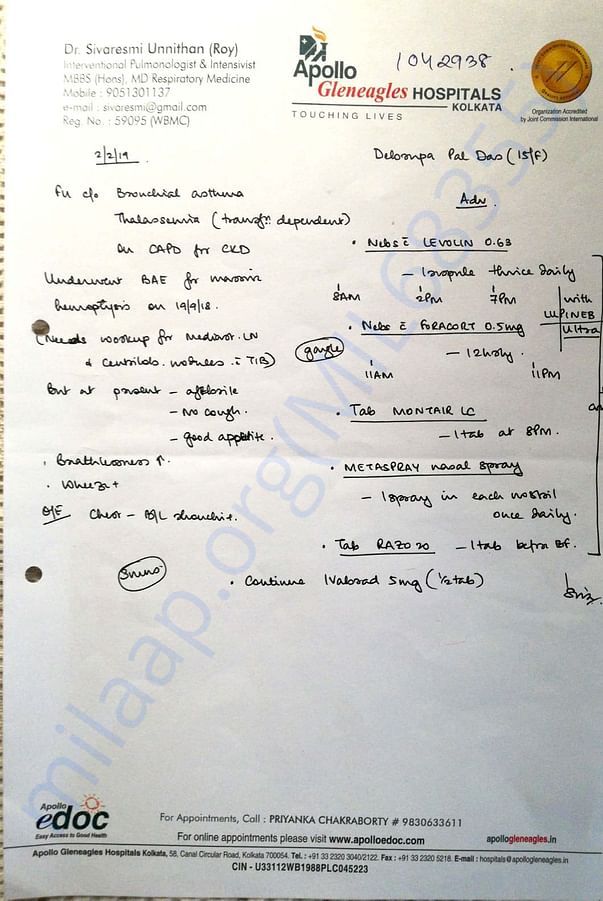 Dr. Sivaresmi Unnithan (Roy)
Interventional Pulmonologist & Intensivist
MBBS (Hons), MD Respiratory Medicine
Mobile : 9051301137
e-mail : sivaresmi@gmail.com
Reg. No. : 59095 (WBMC)
Apollo
Gleneagles HOSPITALS
KOLKATA
TOUCHING LIVES
1042938
Organization Accredited
by Joint Commission International
2/2/19
Pal Das (15/F)
Fu c/o Bronchial asthma
Thalassemia (transfn. dependent)
on CAPD for CKD
Underwent BAE for massive
hemoptysis on 19/9/18.
(Needs workup for LN
& centrilob. nodules TIB)
But at present - afebrile
- No cough.
- good appetite.
. Breathlessness ↑.
. Wheeze +
O/E Chest - B/L rhonchi +.
Adv.
• Nebs c̄ LEVOLIN 0.63
- 1 respule thrice daily
8AM 2PM 7PM
with
LUPINEB
Ultra
• Nebs c̄ FORACORT 0.5mg
- 12hrly.
gargle
11AM 11PM
• Tab MONTAIR LC
- 1 tab at 8PM.
• METASPRAY nasal spray
- 1 spray in each nostril
once daily.
• Tab RAZO 20 - 1 tab before BF.
3mno
• Continue Ivabrad 5mg (1/2 tab)
milaap.org(MIL68355)
Apollo
edoc
Easy Access to Good Health
For Appointments, Call : PRIYANKA CHAKRABORTY # 9830633611
For online appointments please visit www.apolloedoc.com
apollogleneagles.in
Apollo Gleneagles Hospitals Kolkata, 58, Canal Circular Road, Kolkata 700054. Tel.: +91 33 2320 3040/2122. Fax : +91 33 2320 5218. E-mail : hospitals@apollogleneagles.in
CIN - U33112WB1988PLC045223